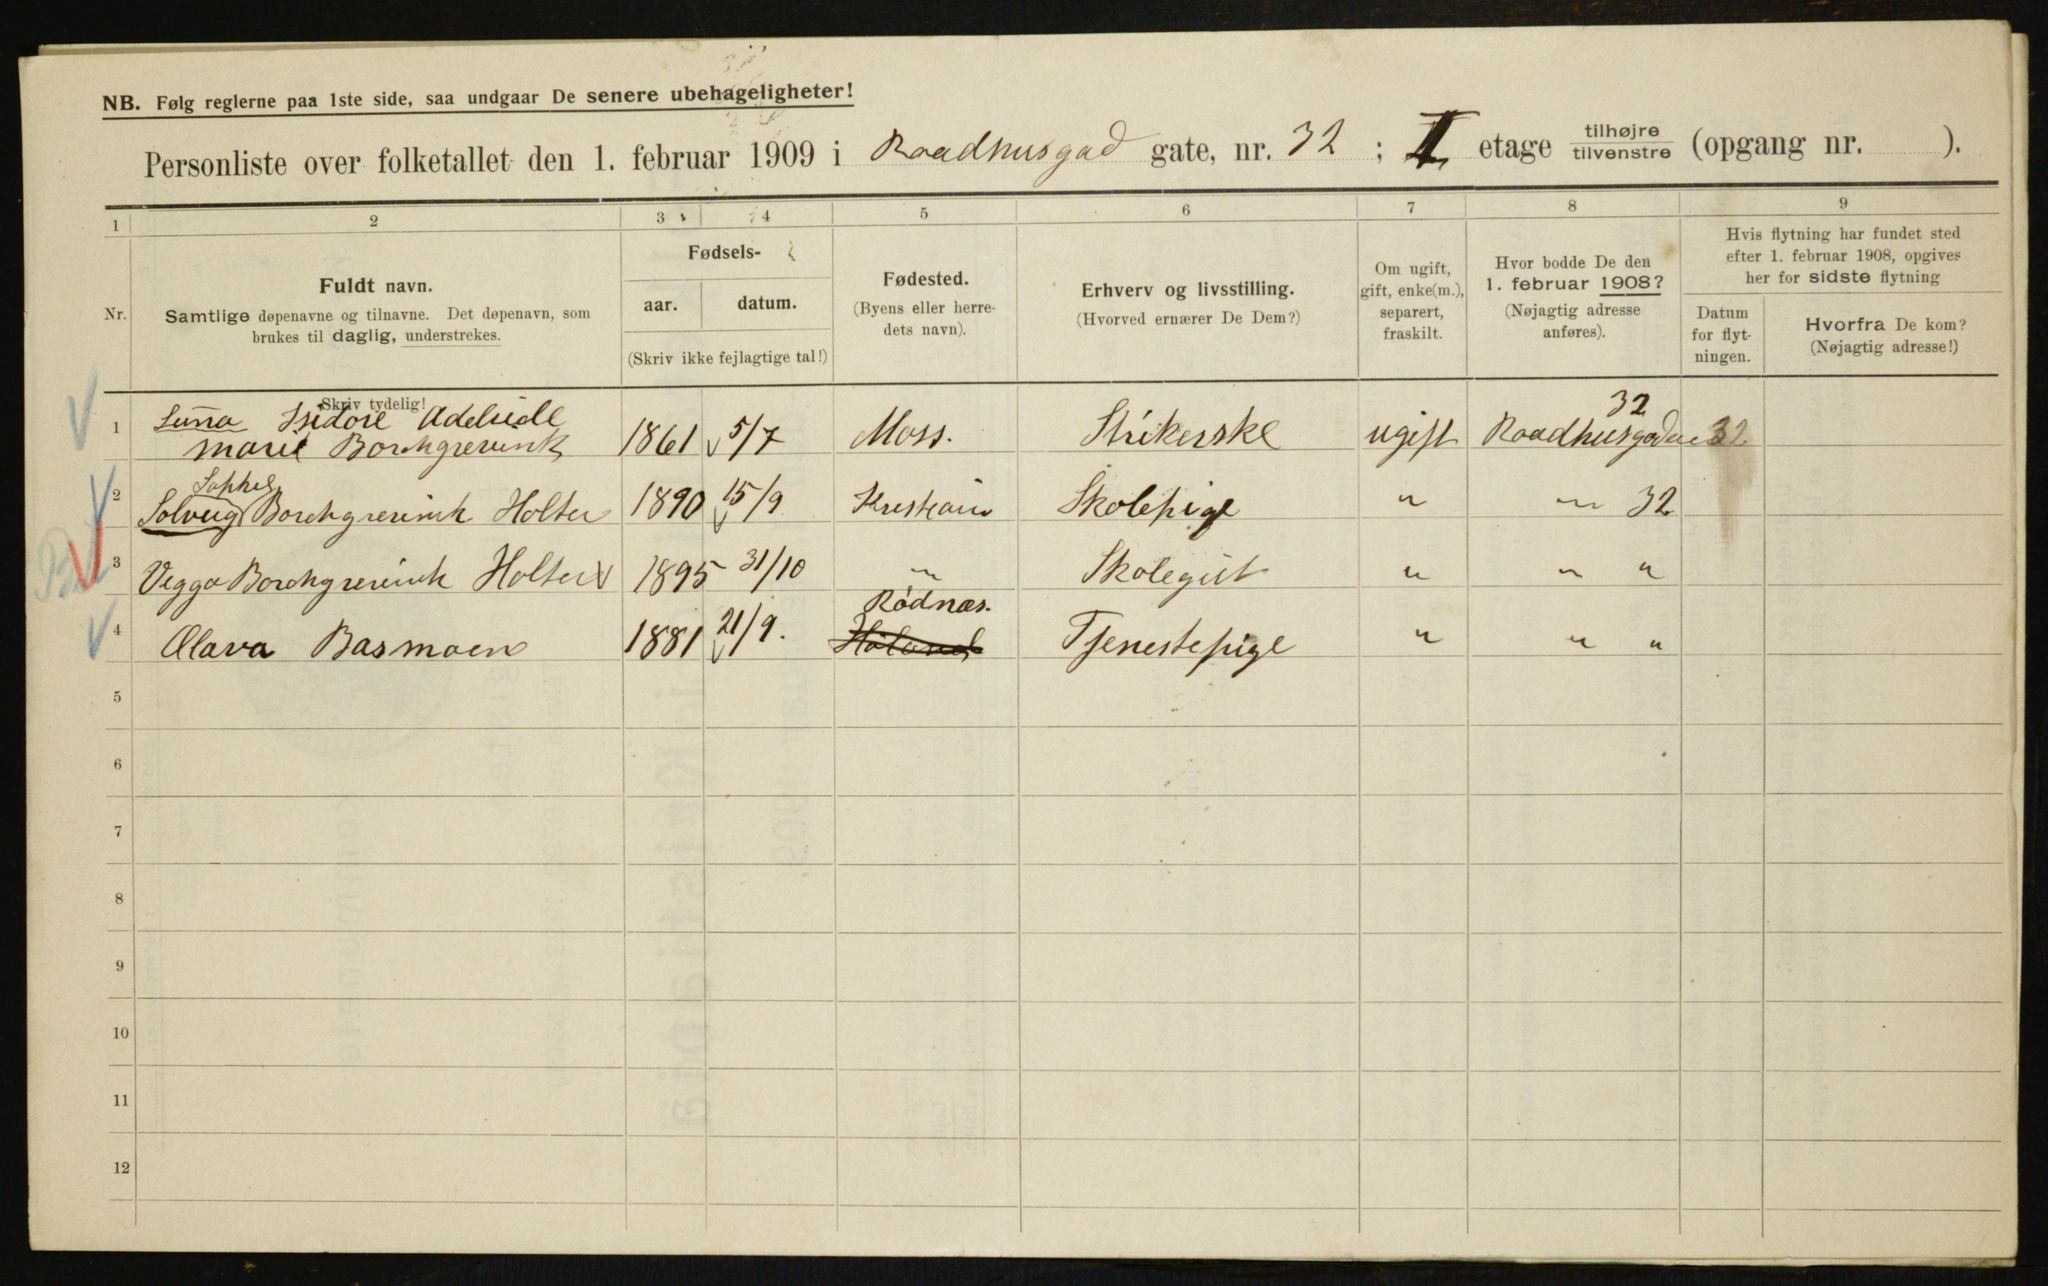 NB. Følg reglerne paa 1ste side, saa undgaar De senere ubehageligheter!
Personliste over folketallet den 1. februar 1909 i Raadhusgad gate, nr. 32 ; I etage tilhøjre tilvenstre (opgang nr. ).
1 2 3 4 5 6 7 8 9
Nr.
Fuldt navn.
Samtlige døpenavne og tilnavne. Det døpenavn, som
brukes til daglig, understrekes.
Skriv tydelig!
Fødsels-
aar. datum.
(Skriv ikke fejlagtige tal!)
Fødested.
(Byens eller herre-
dets navn).
Erhverv og livsstilling.
(Hvorved ernærer De Dem?)
Om ugift,
gift, enke(m.),
separert,
fraskilt.
Hvor bodde De den
1. februar 1908?
(Nøjagtig adresse
anføres).
Hvis flytning har fundet sted
efter 1. februar 1908, opgives
her for sidste flytning
Datum
for flyt-
ningen.
Hvorfra De kom?
(Nøjagtig adresse!)
Isidore Adelaide 32
1 Marie Borchgrevink 1861 5/7 Moss. Strikerske ugift Raadhusgaden 32
Sophie
2 Solveig Borchgrevink Holter 1890 15/9 Kristiania Skolepige " " 32
3 Viggo Borchgrevink Holter 1895 31/10 " Skolegut " " "
Rødnæs.
4 Olava Basmoen 1881 21/9. Høland Tjenestepige " " "
5
6
7
8
9
10
11
12